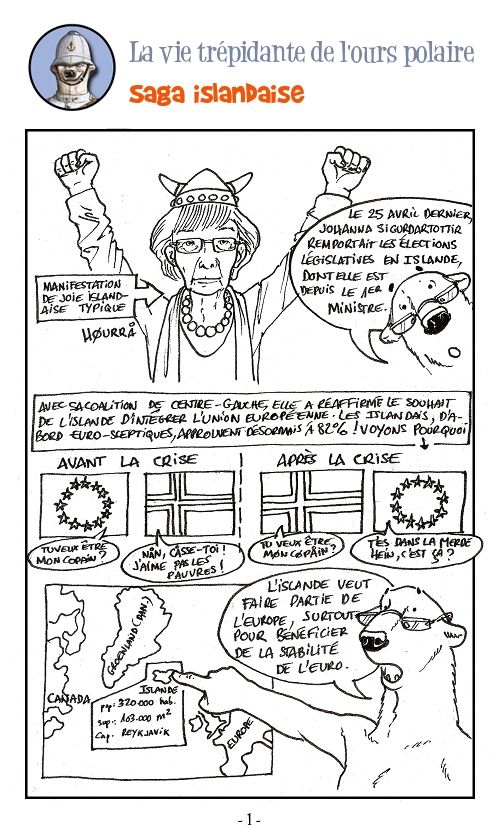 La vie trépidante de l'ours polaire
Saga islandaise
LE 25 AVRIL DERNIER,
JOHANNA SIGURDARTOTTIR
REMPORTAIT LES ÉLECTIONS
LÉGISLATIVES EN ISLANDE,
DONT ELLE EST
DEPUIS LE 1ER
MINISTRE.
MANIFESTATION
DE JOIE ISLAND-
AISE TYPIQUE
HØURRÅ
AVEC SA COALITION DE CENTRE-GAUCHE, ELLE A RÉAFFIRMÉ LE SOUHAIT
DE L'ISLANDE D'INTÉGRER L'UNION EUROPÉENNE. LES ISLANDAIS, D'A-
BORD EURO-SCEPTIQUES, APPROUVENT DÉSORMAIS À 82% ! VOYONS POURQUOI
AVANT LA CRISE
APRÈS LA CRISE
TU VEUX ÊTRE
MON COPAIN ?
NÂN, CASSE-TOI !
J'AIME PAS LES
PAUVRES !
TU VEUX ÊTRE
MON COPAIN ?
T'ES DANS LA MERDE
HEIN, C'EST ÇA ?
L'ISLANDE VEUT
FAIRE PARTIE DE
L'EUROPE, SURTOUT
POUR BÉNÉFICIER
DE LA STABILITÉ
DE L'EURO.
GROENLAND (DAN.)
CANADA
ISLANDE
pop: 320.000 hab.
sup: 103.000 m2
Cap. REYKJAVIK
EUROPE
- 1 -